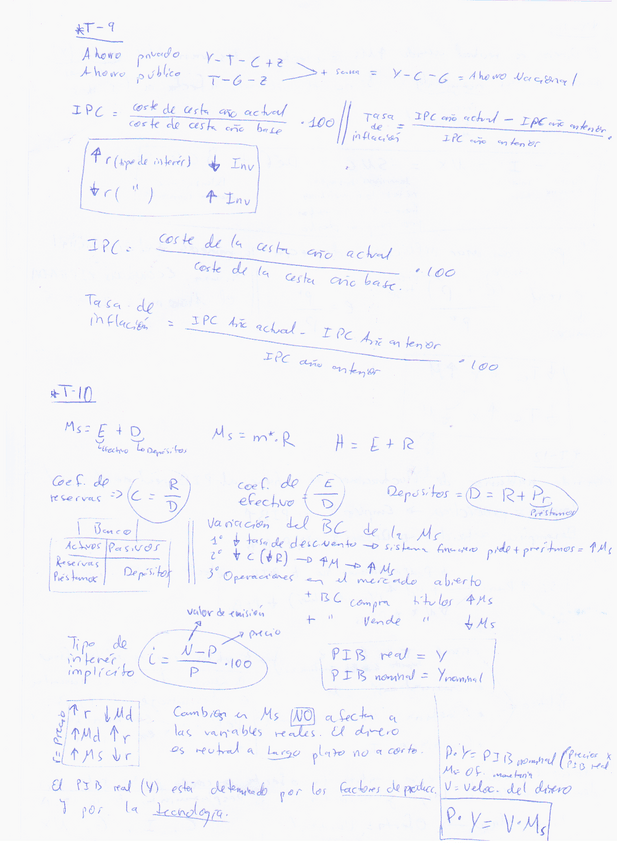 *T-9
Ahorro privado Y-T-C+Z
Ahorro público T-G-Z
+ suma = Y-C-G = Ahorro Nacional
IPC = coste de cesta año actual / coste de cesta año base · 100
Tasa de inflación = IPC año actual - IPC año anterior / IPC año anterior
↑ r (tipo de interés) ↓ Inv
↓ r ( " ) ↑ Inv
IPC = coste de la cesta año actual / coste de la cesta año base. · 100
Tasa de inflación = IPC Año actual - IPC Año anterior / IPC año anterior · 100
*T-10
Ms = E + D
efectivo Depósitos
Ms = m*·R
H = E + R
Coef. de reservas => C = R/D
coef. de efectivo = E/D
Depósitos = D = R + Pr
Préstamos
Banco
Activos Pasivos
Reservas
Préstamos Depósitos
Variación del BC de la Ms
1º ↓ tasa de descuento → sistema financiero pide + préstmos = ↑ Ms
2º ↓ C (↓R) → ↑M → ↑ Ms
3º Operaciones en el mercado abierto
+ BC compra títulos ↑ Ms
+ " vende " ↓ Ms
valor de emisión
precio
Tipo de interés implícito i = N-P / P · 100
PIB real = Y
PIB nominal = Ynominal
r = Precio
↑ r ↓ Md
↑ Md ↑ r
↑ Ms ↓ r
Cambios en Ms NO afecta a
las variables reales. El dinero
es neutral a Largo plazo no a corto.
El PIB real (Y) está determinado por los factores de producc.
Y por la tecnología.
P·Y = PIB nominal (Precios x PIB real
Ms Of. monetaria
V = Veloc. del dinero
P·Y = V·Ms